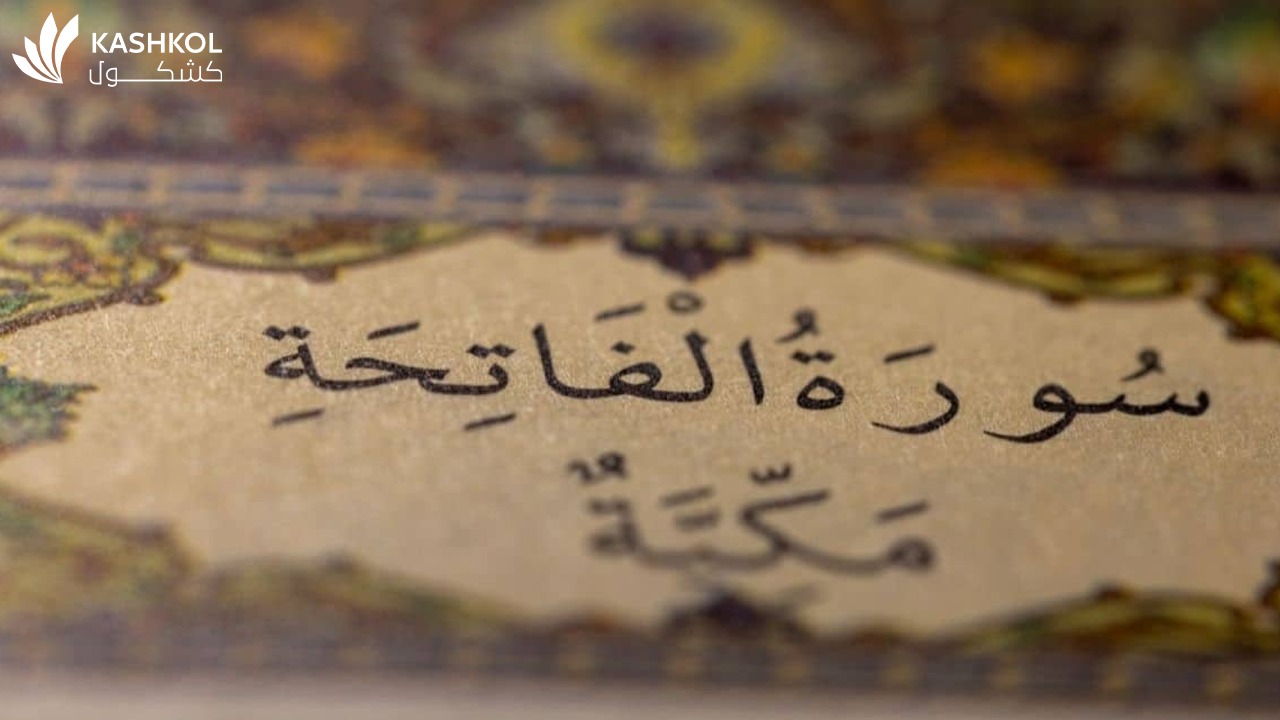 KASHKOL
كشكـــول
سُورَةُ الْفَاتِحَةِ
مَكِّيَّةٌ